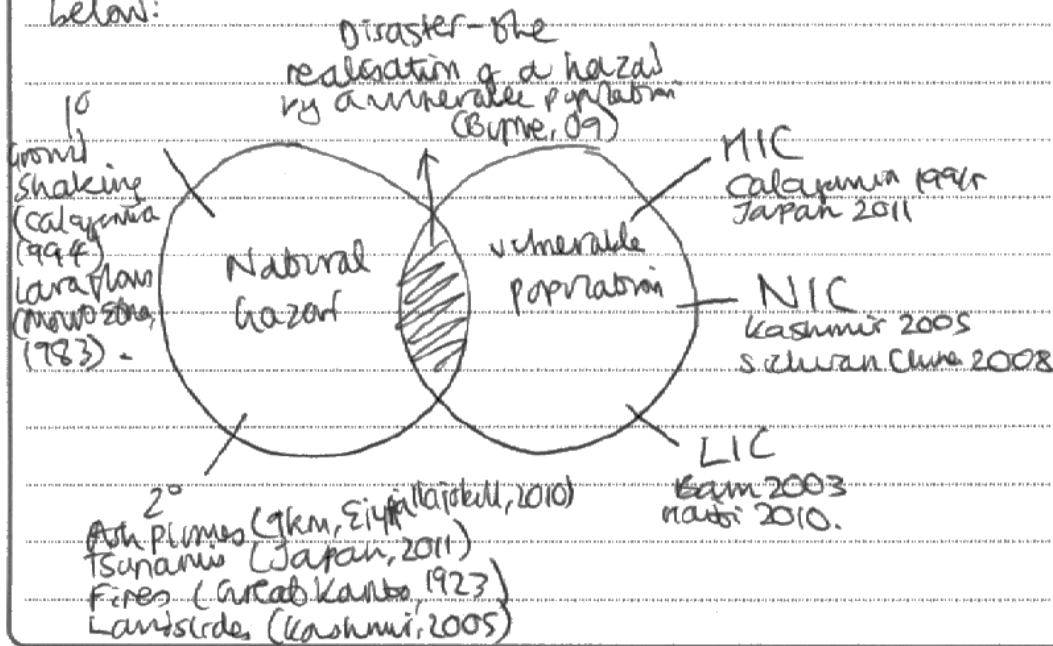 below:
Disaster - the
realisation of a hazard
by a vulnerable population
(Byrne, 09)
1°
Ground
shaking
(California
1994)
Lava flows
(
1983).
Natural
hazard
vulnerable
population
MIC
California 1994
Japan 2011
NIC
Kashmir 2005
Sichuan China 2008
LIC
Bam 2003
Haiti 2010.
2°
Ash plumes (9km, Eyjafjallajokull, 2010)
Tsunamis (Japan, 2011)
Fires (Great Kanto, 1923)
Landslides (Kashmir, 2005)